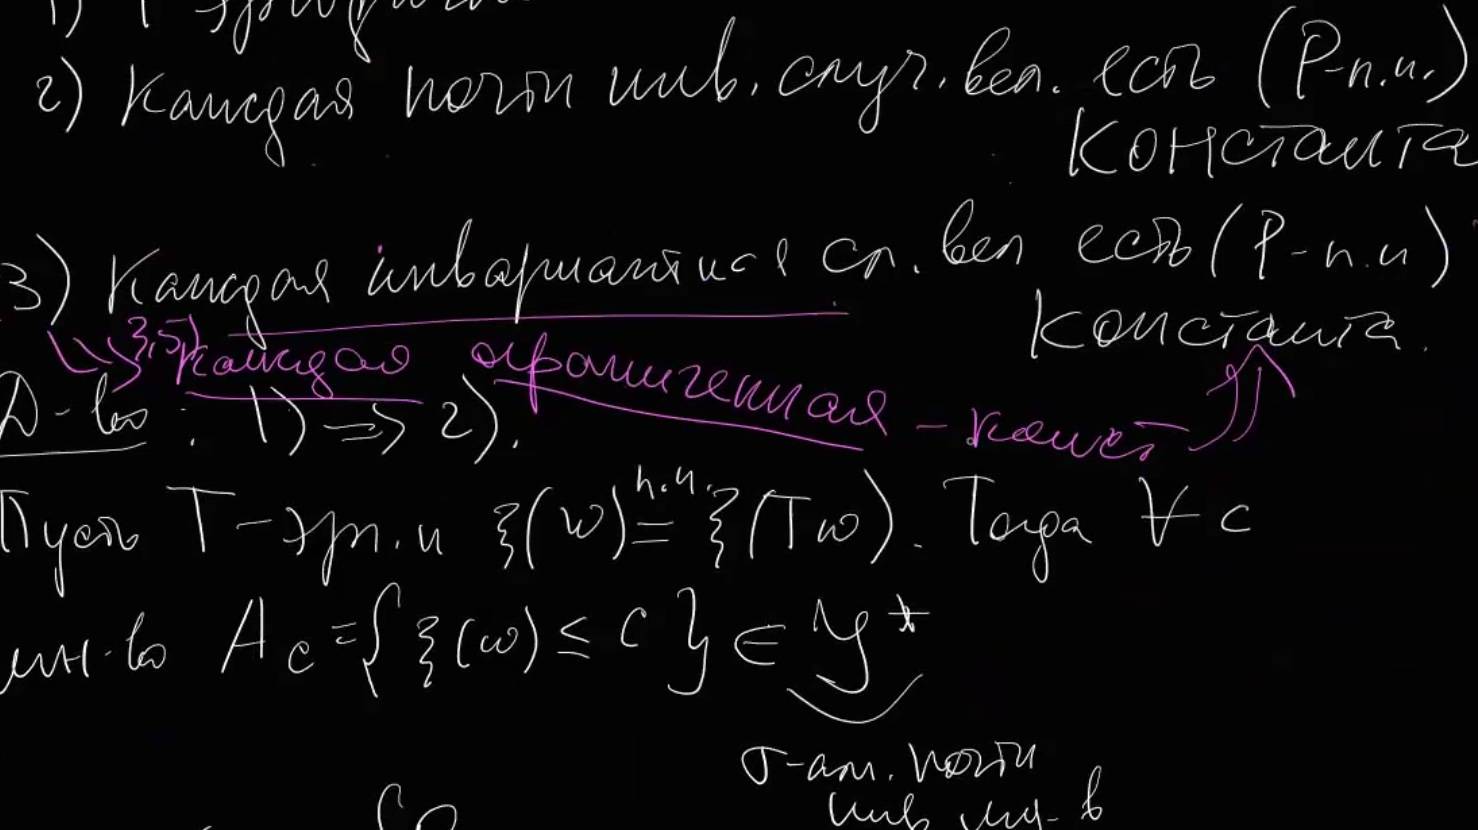 1) T эргодич
2) Каждая почти инв. случ. вел. есть (P-п.н.)
константа
3) Каждая инвариантная сл. вел есть (P-п.н)
константа.
3,5) каждая ограниченная - конст
Д-во: 1) => 2).
Пусть T - эрг. и ξ(ω) п.н. = ξ(Tω). Тогда ∀ c
мн-во A_c = {ξ(ω) ≤ c} ∈ J*
σ-алг. почти
инв. мн-в